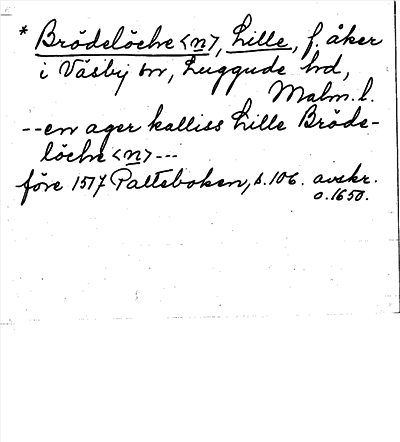 * Brödelöche <n>, Lille, f. åker
i Väsby sn, Luggude hd,
Malm. l.
-- en ager kalliss Lille Bröde-
löche <n> ---
före 1517 Palteboken, s. 106. avskr.
o. 1650.